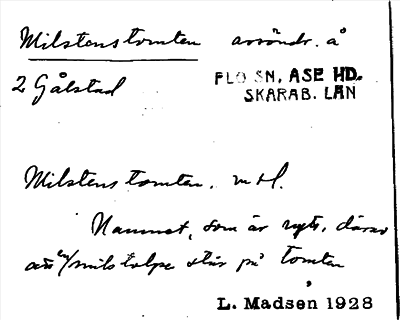 Milstenstomten avsöndr. å
2 Gålstad
FLO SN, ASE HD.
SKARAB. LÄN
Milstenstomten. m H.
Namnet, som är nytt, därav
att en milstolpe står på tomten
L. Madsen 1928